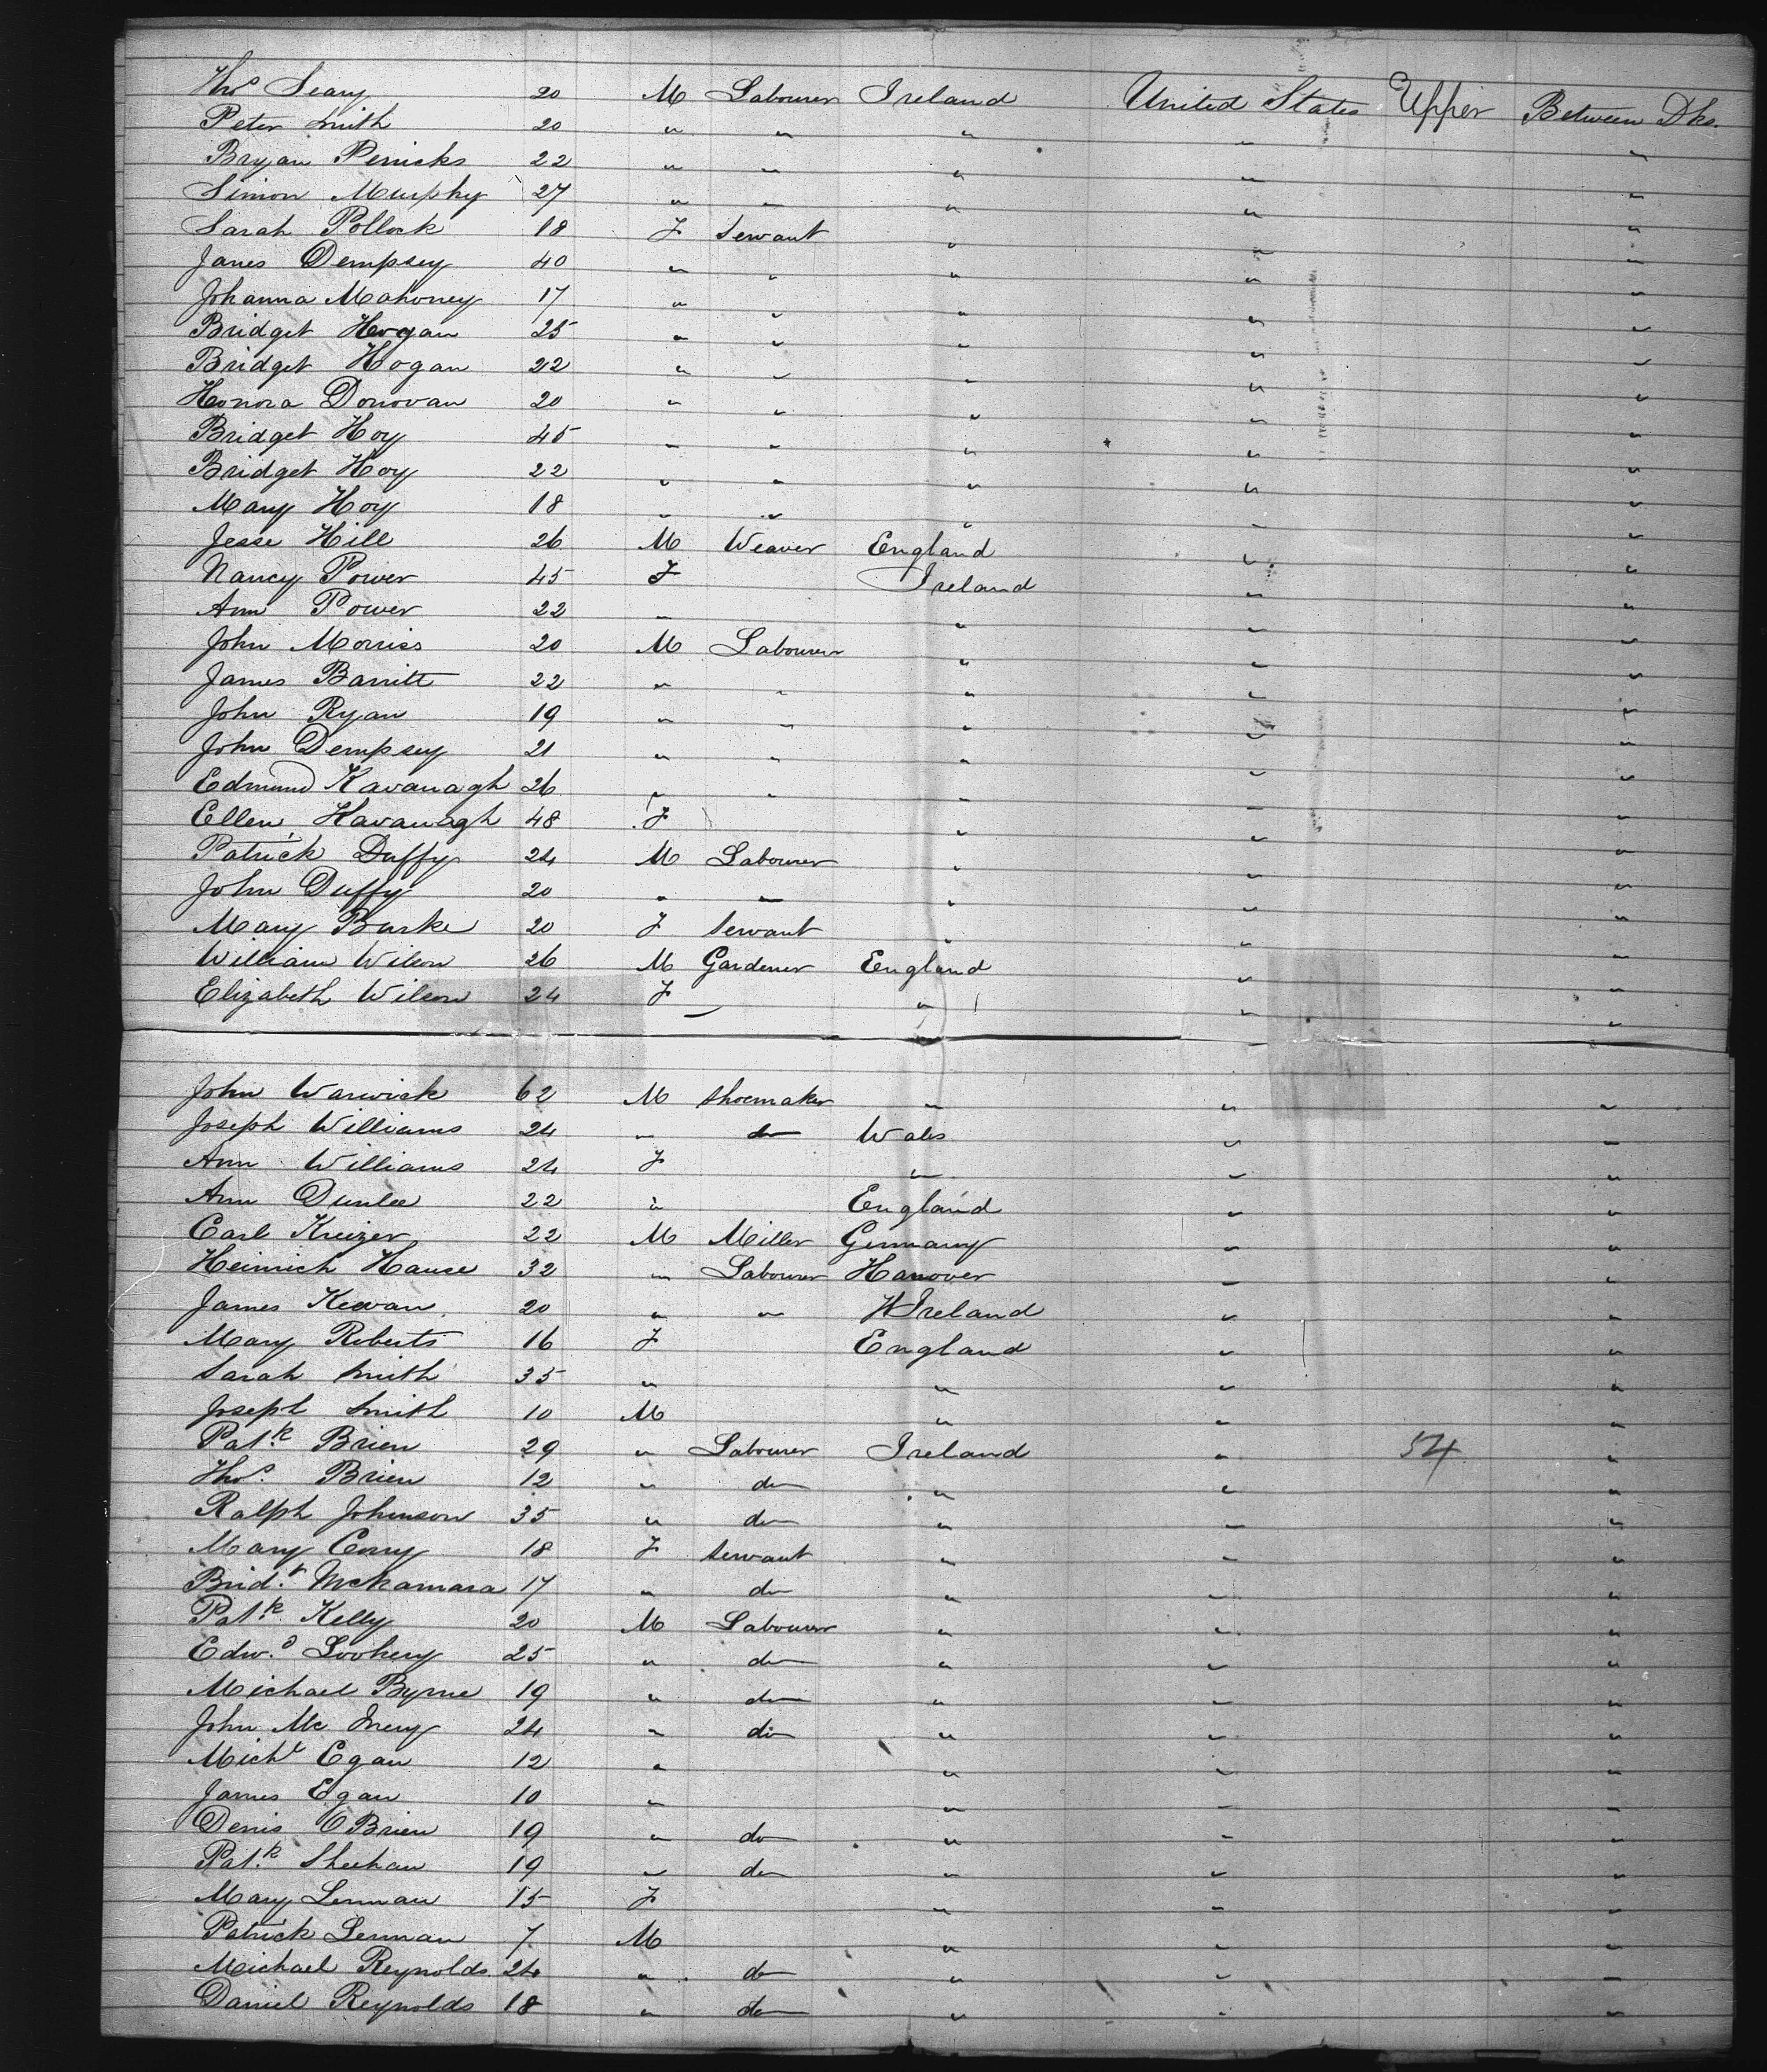 Thos Seary 20 M Labourer Ireland United States Upper Between Dks.
Peter Smith 20 " " " " "
Bryan Penicks 22 " " " " "
Simon Murphy 27 " " " " "
Sarah Pollock 18 F Servant " " "
Janes Dempsey 40 " " " " "
Johanna Mahoney 17 " " " " "
Bridget Hogan 25 " " " " "
Bridget Hogan 22 " " " " "
Honora Donovan 20 " " " " "
Bridget Hoy 45 " " " " "
Bridget Hoy 22 " " " " "
Mary Hoy 18 " " " " "
Jesse Hill 26 M Weaver England " "
Nancy Power 45 F Ireland " "
Ann Power 22 " " " "
John Morriss 20 M Labourer " " "
James Barritt 22 " " " " "
John Ryan 19 " " " " "
John Dempsey 21 " " " " "
Edmund Kavanagh 26 " " " " "
Ellen Kavanagh 48 F " " "
Patrick Duffy 24 M Labourer " " "
John Duffy 20 " " " " "
Mary Burke 20 F Servant " " "
William Wilson 26 M Gardener England " "
Elizabeth Wilson 24 F " " "
John Warwick 62 M Shoemaker " " "
Joseph Williams 24 " do Wales " "
Ann Williams 24 F " " "
Ann Dunlee 22 " England " "
Carl Kreizer 22 M Miller Germany " "
Heinrich Hause 32 " Labourer Hanover " "
James Kewan 20 " " Ireland " "
Mary Roberts 16 F England " "
Sarah Smith 35 " " " "
Joseph Smith 10 M " " "
Patk. Brien 29 " Labourer Ireland " 54 "
Thos. Brien 12 " do " " "
Ralph Johnson 35 " do " " "
Mary Corry 18 F Servant " " "
Bridt. McNamara 17 " do " " "
Patk. Kelly 20 M Labourer " " "
Edwd. Loohery 25 " do " " "
Michael Byrne 19 " do " " "
John Mc Inery 24 " do " " "
Michl Egan 12 " " " "
James Egan 10 " " " "
Denis OBrien 19 " do " " "
Patk. Sheehan 19 " do " " "
Mary Lennan 15 F " " "
Patrick Lennan 7 M " " "
Michael Reynolds 24 " do " " "
Daniel Reynolds 18 " do " " "